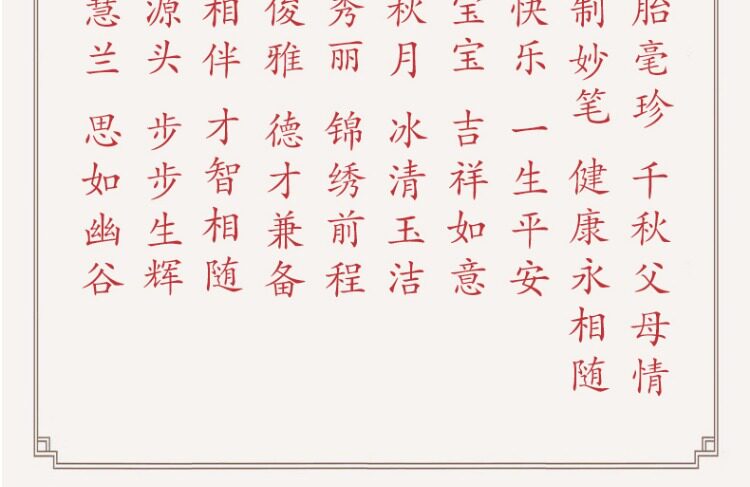 胎毫珍 千秋父母情
制妙笔 健康永相随
快乐 一生平安
宝宝 吉祥如意
秋月 冰清玉洁
秀丽 锦绣前程
俊雅 德才兼备
相伴 才智相随
源头 步步生辉
慧兰 思如幽谷